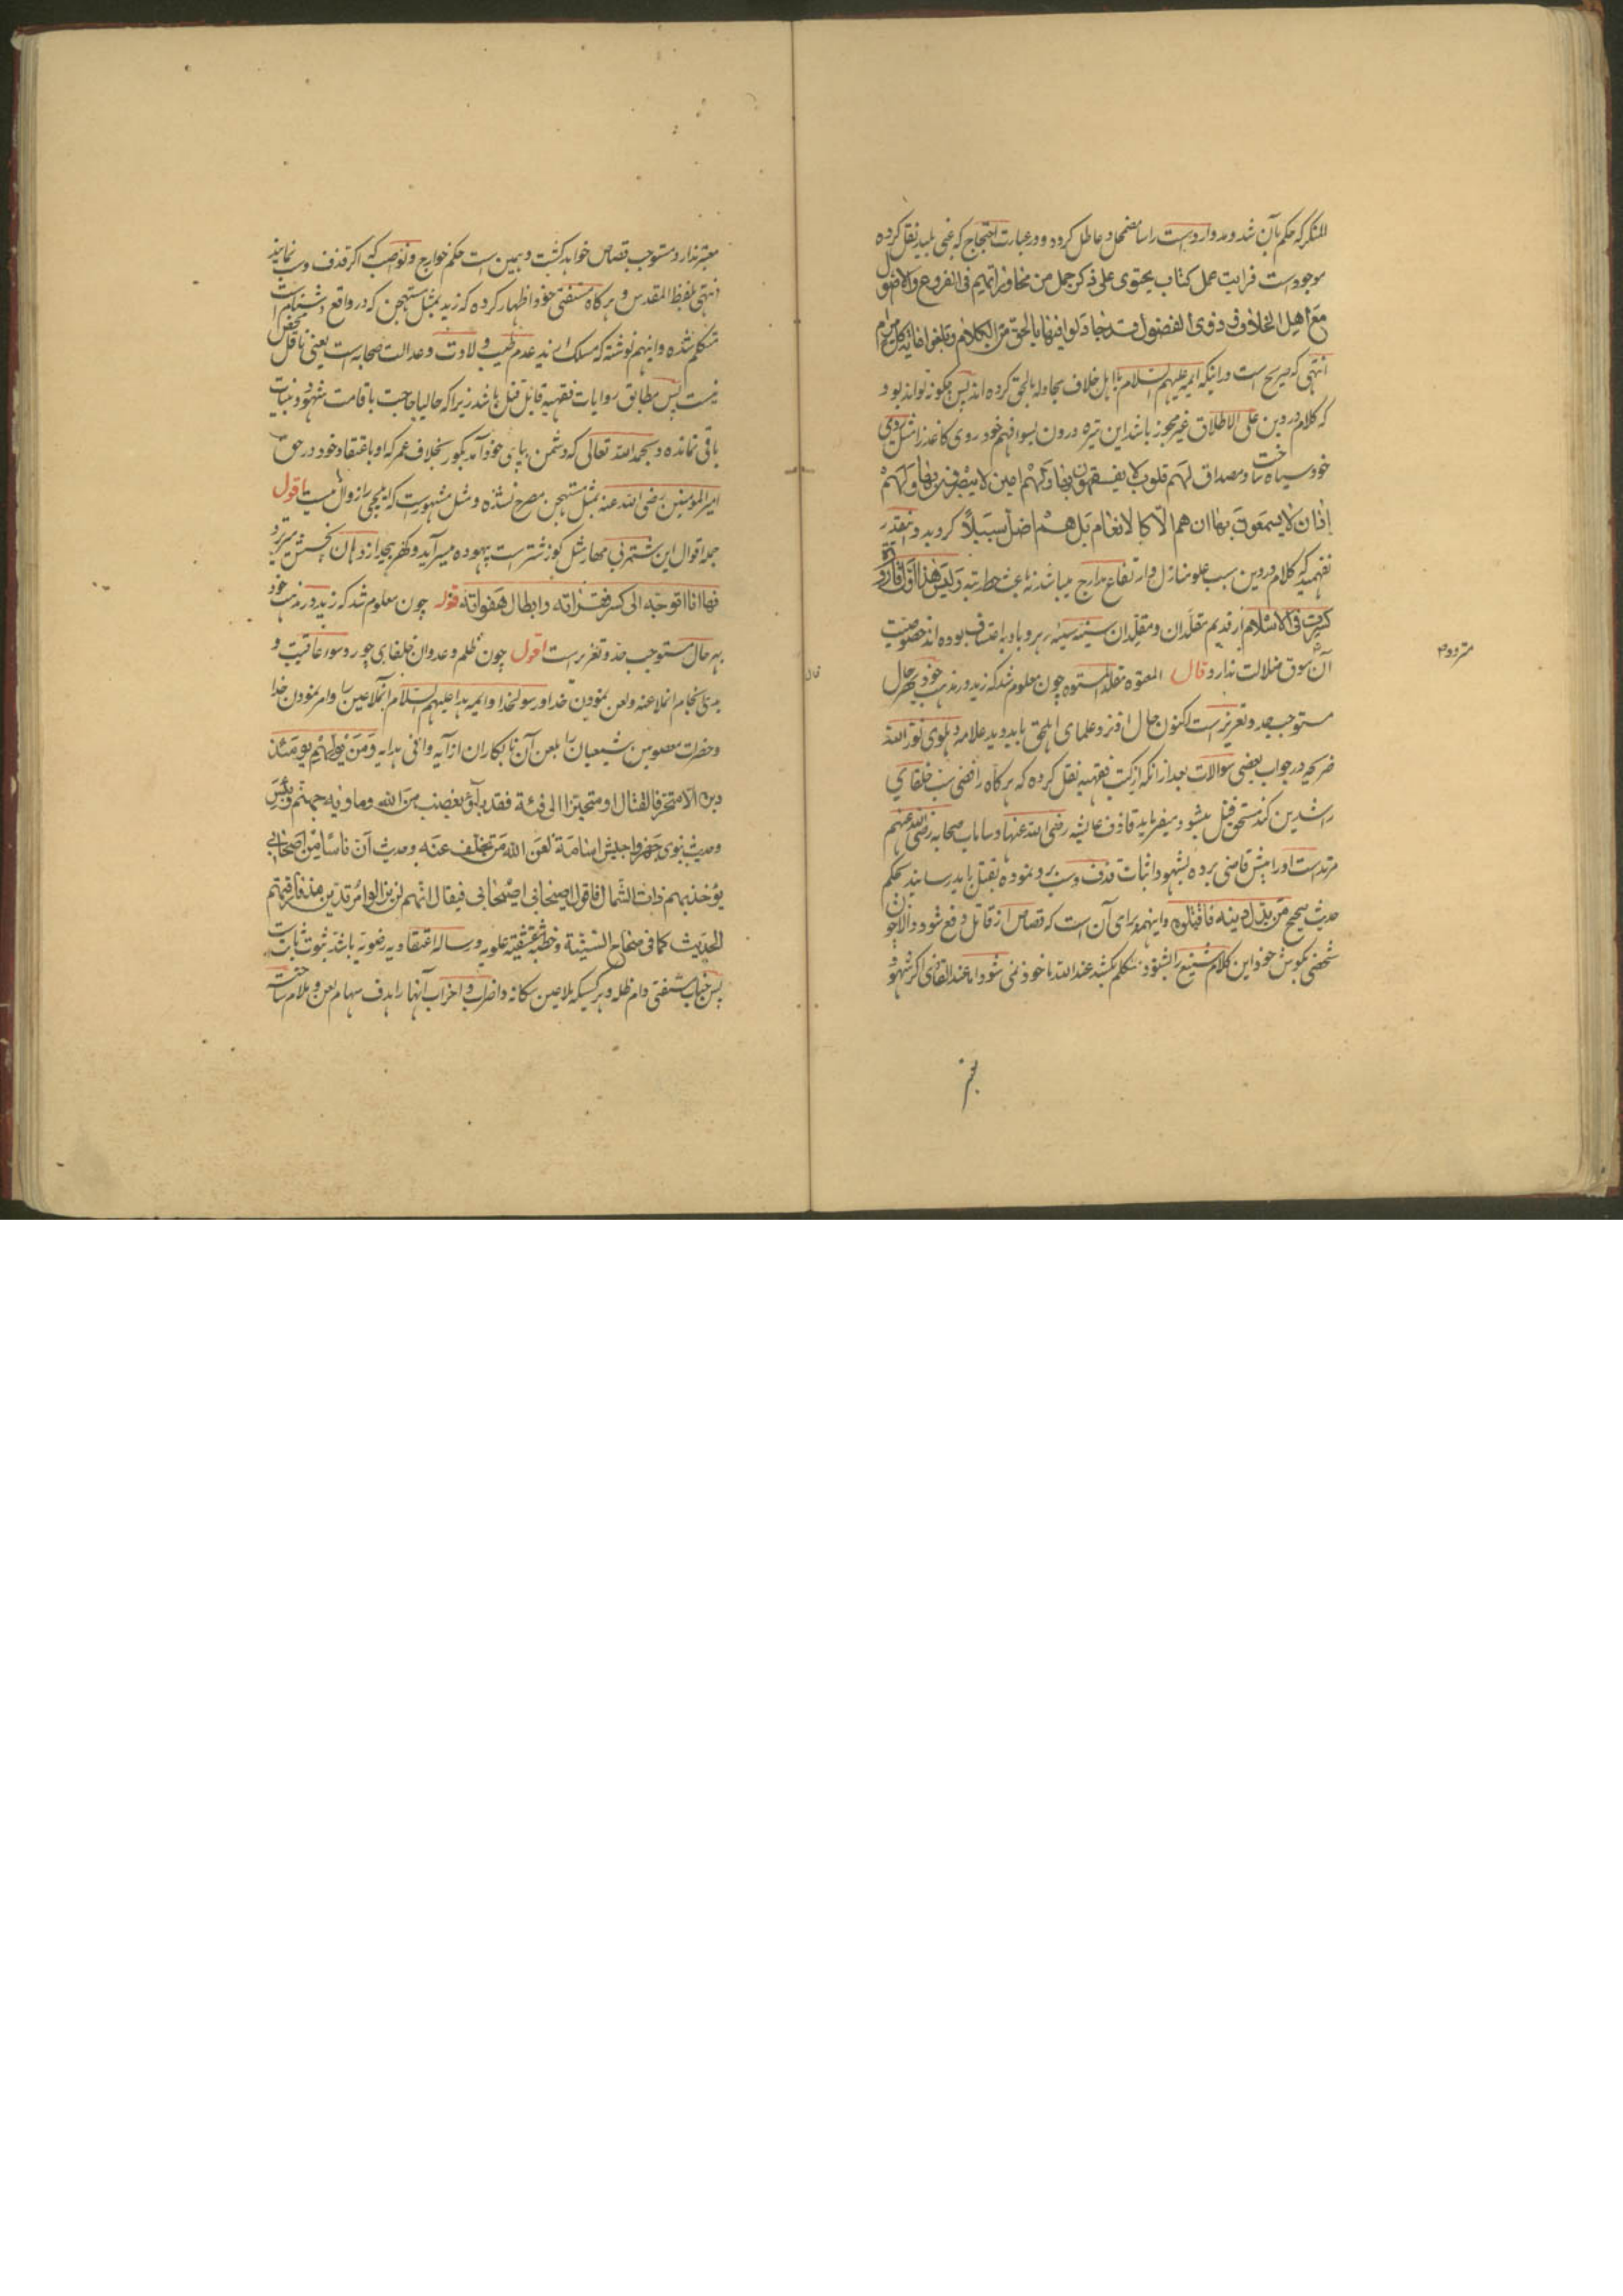 للمنکر که حکم بآن شد و مدوار دست راسا مضمحل و عاطل کرده و در عبارت احتجاج که غبی بلید نقل کرده
موجودست فرایت عمل کتاب یحتوی علی ذکر جمل من محاوراتهم فی الفروع والاصول
مع اهل الخلاف و ذوی الفضول قد جادلوا فیها بالحق من الکلام و بلغوا غایة کل مرام
انتهی که صریح ست در اینکه ایمه علیهم السلام با اهل خلاف مجادله بالحق کرده اند پس چگونه تواند بود
که کلام در دین علی الاطلاق غیر مجوز باشد این تیره درون بسوء فهم خود روی کاغذ را مثل روی
خود سیاه ساخت و مصداق لهم قلوب لا یفقهون بها ولهم اعین لا یبصرون بها ولهم
اذان لا یسمعون بها ان هم الا کالانعام بل هم اضل سبیلا گردید و اینقدر
نفهمید که کلام در دین سبب علو منازل و ارتفاع مدارج میباشد نه باعث حط رتبه ولیس هذا اول قارورة
کسرت فی الاسلام از قدیم مقلدان و مقلدان سنیه سنیه رهرو بادیه اعتساف بوده اند خصوصیت
آن سوق ضلالت ندارد قال المعتوه مقلد المستوه چون معلوم شد که زید در مذهب خود بهر حال
مستوجب حد و تعزیر ست اکنون حال او نزد علمای اهل حق باید دید علامه دهلوی نور الله
ضریحه در جواب بعضی سوالات بعد از انکه از کتب فقهیه نقل کرده که هرگاه رافضی سب خلفای
راشدین کند مستحق قتل میشود میفرماید قاذف عایشه رضی الله عنها و ساب صحابه رضی الله عنهم
مرتدست اورا پیش قاضی برده بشهود اثبات قذف و سب برو نموده بقتل باید رسانید بحکم
حدیث صحیح من بدل دینه فاقتلوه و اینهمه برای آن است که قصاص از قاتل دفع شود والا چون
شخصی بگوش خود این کلام شنیع را بشنود متکلم بکشد عند الله ماخوذ نمی شود اما عند القاضی اگر شهود
معتبر ندارد مستوجب قصاص خواهد گشت و همین ست حکم خوارج و نواصب که اگر قذف و سب نمایند
انتهی بلفظ المقدس و هرگاه مستفتی خود اظهار کرده که زید بمثل مستهجن که در واقع دشنام است
متکلم شده و اینهم نوشته که مسلک زید عدم طیب ولادت و عدالت صحابه است یعنی ناقل محض
نیست پس مطابق روایات فقهیه قابل قتل باشد زیرا که حالیا حاجت باقامت شهود و بینات
باقی نمانده و بحمد الله تعالی که دشمن بپای خود آمد بگور بخلاف عمر که او باعتقاد خود در حق
امیر المومنین رضی الله عنه بمثل مستهجن مصرح نشده و مثل مشهورست که ایلچی را زوال نیست اقول
جمله اقوال این شتر بی مهار مثل گوز شترست بیهوده میسراید و کفر بیحد از دهان نحسش میریزد
فها انا اتوجه الی کسر فقراته و ابطال هفواته قوله چون معلوم شد که زید در مذهب خود
بهر حال مستوجب حد و تعزیر ست اقول چون ظلم و عدوان خلفای جور و سوء عاقبت و
بدی انجام ملاعنه و لعن نمودن خدا و رسولخدا و ایمه هدا علیهم السلام آنملاعین را و امر نمودن خدا
وحضرات معصومین شیعیان را بلعن آن نابکاران از آیه وافی هدایه ومن یولهم یومئذ
دبره الا متحرفا لقتال او متحیزا الی فئة فقد باء بغضب من الله وماویه جهنم وبئس
وحدیث نبوی جهزوا جیش اسامة لعن الله من تخلف عنه وحدیث ان ناسا من اصحابی
یؤخذ بهم ذات الشمال فاقول اصحابی اصحابی فیقال انهم لن یزالوا مرتدین منذ فارقتهم
الحدیث کما فی منهاج السنة و خطبه شقشقیه علویه و رساله اعتقادیه رضویه باشد ثبوت ثابت
پس جناب مستفتی دام ظله و هر کسیکه ملاعین سگانه و اضراب و احزاب آنها را هدف سهام لعن و ملام ساخته